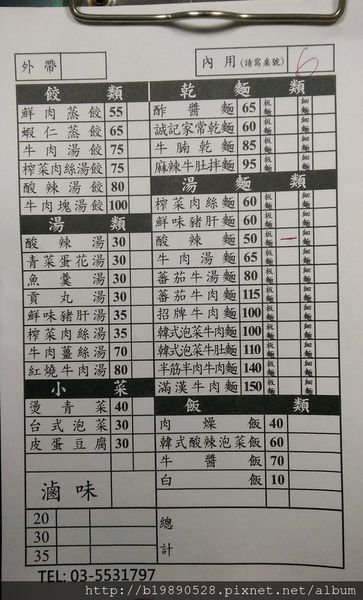 外帶
內用(請寫桌號) 6
餃類
鮮肉蒸餃 55
蝦仁蒸餃 65
牛肉湯餃 75
榨菜肉絲湯餃 75
酸辣湯餃 80
牛肉塊湯餃 100
湯類
酸辣湯 30
青菜蛋花湯 30
魚羹湯 30
貢丸湯 30
鮮味豬肝湯 35
榨菜肉絲湯 35
牛肉薑絲湯 70
紅燒牛肉湯 80
小菜
燙青菜 40
台式泡菜 30
皮蛋豆腐 30
滷味
20
30
35
乾麵類
酢醬麵 65 板麵 細麵
誠記家常乾麵 60 板麵 細麵
牛腩乾麵 85 板麵 細麵
麻辣牛肚拌麵 95 板麵 細麵
湯麵類
榨菜肉絲麵 60 板麵 細麵
鮮味豬肝麵 60 板麵 細麵
酸辣麵 50 板麵 一 細麵
牛肉湯麵 65 板麵 細麵
蕃茄牛湯麵 80 板麵 細麵
蕃茄牛肉麵 115 板麵 細麵
招牌牛肉麵 100 板麵 細麵
韓式泡菜牛肉麵 100 板麵 細麵
韓式泡菜牛肚麵 110 板麵 細麵
半筋半肉牛肉麵 140 板麵 細麵
滿漢牛肉麵 150 板麵 細麵
飯類
肉燥飯 40
韓式酸辣泡菜飯 60
牛醬飯 70
白飯 10
總計
TEL: 03-5531797
http://b19890528.pixnet.net/album